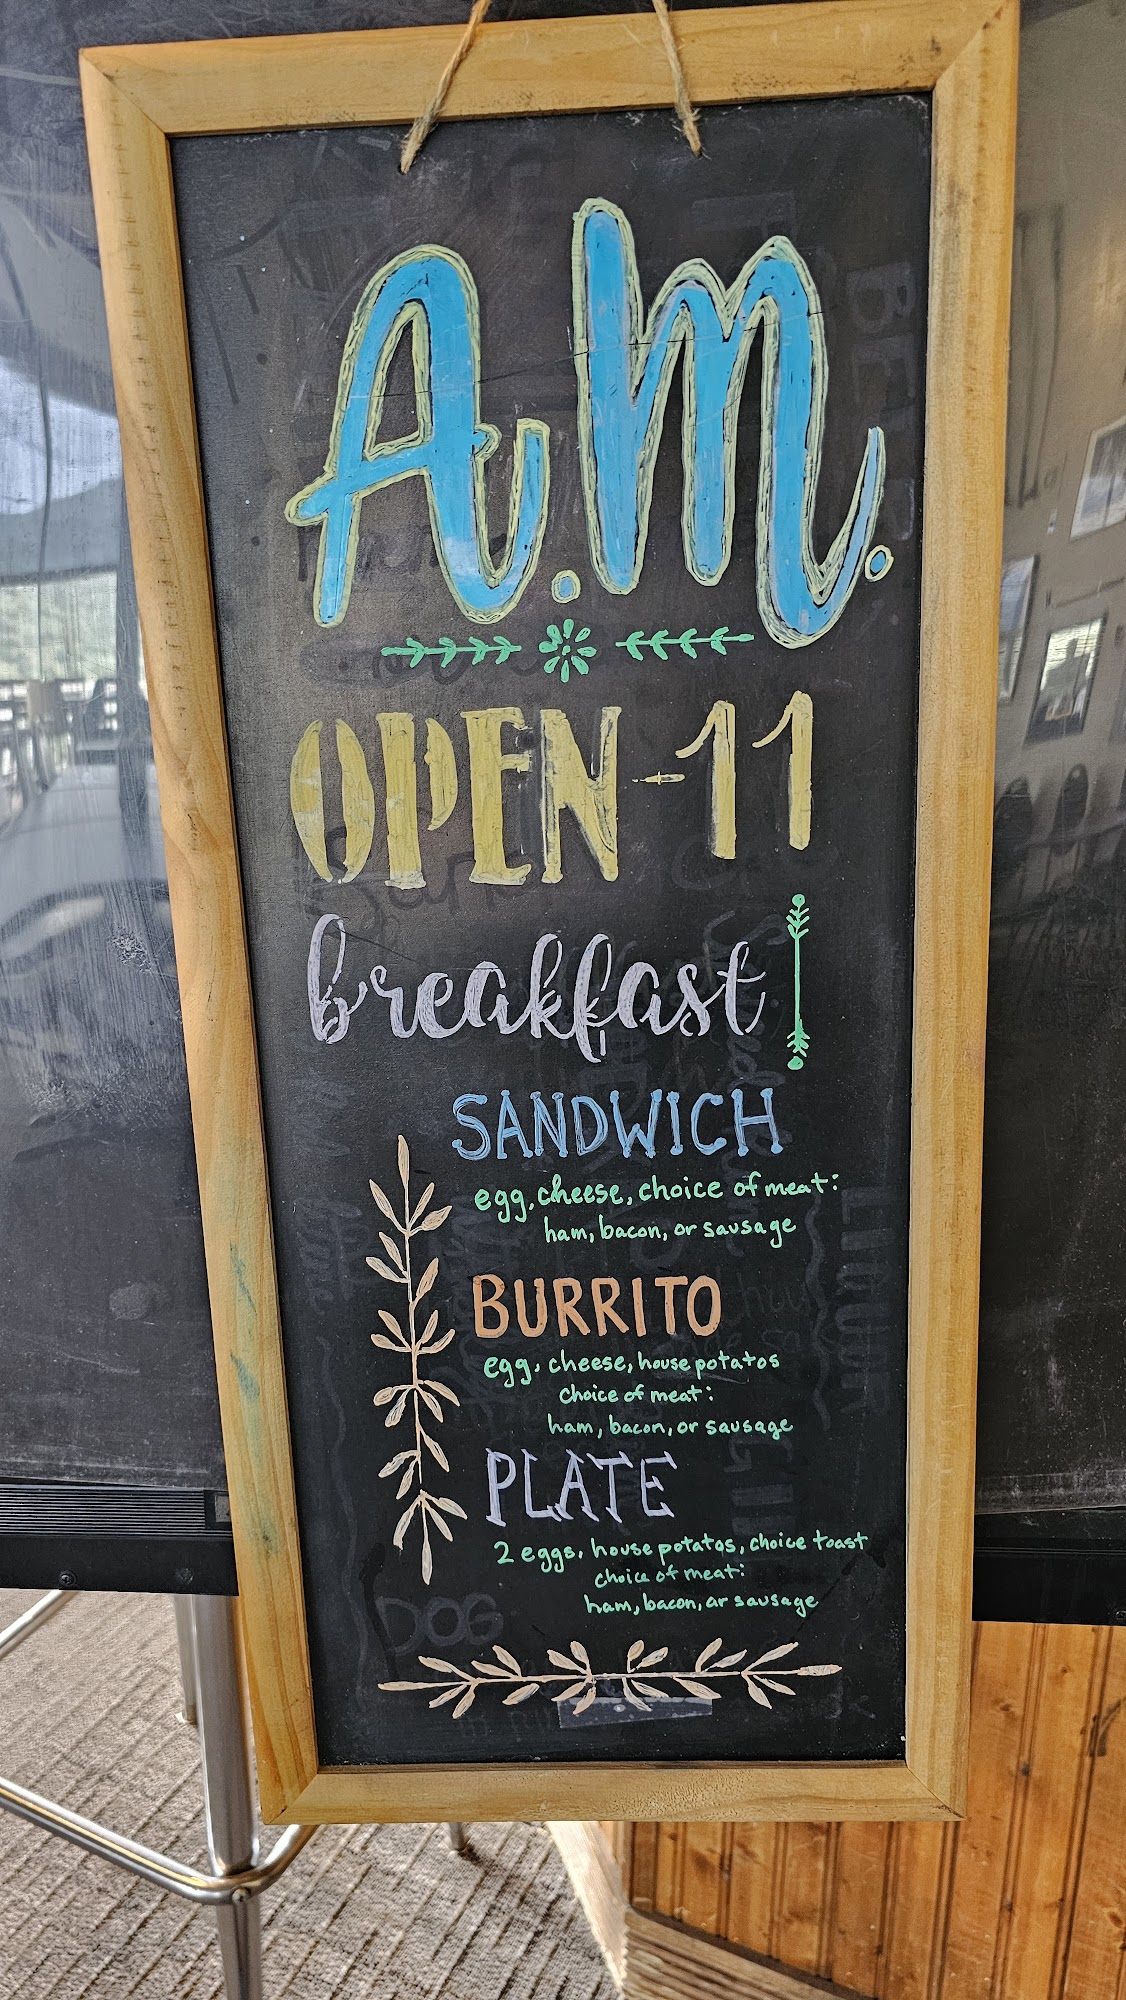 A.M.
OPEN-11
breakfast
SANDWICH
egg, cheese, choice of meat:
ham, bacon, or sausage
BURRITO
egg, cheese, house potatos
choice of meat:
ham, bacon, or sausage
PLATE
2 eggs, house potatos, choice toast
choice of meat:
ham, bacon, or sausage
DOG